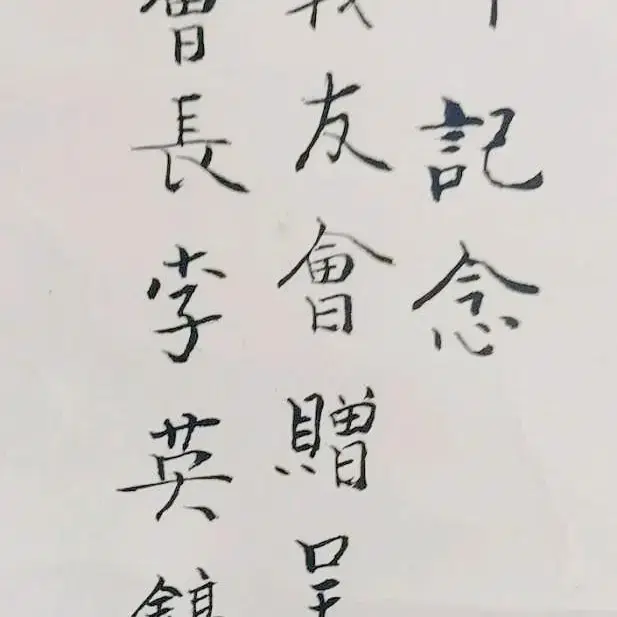 記念
友會贈呈
會長李英鎮